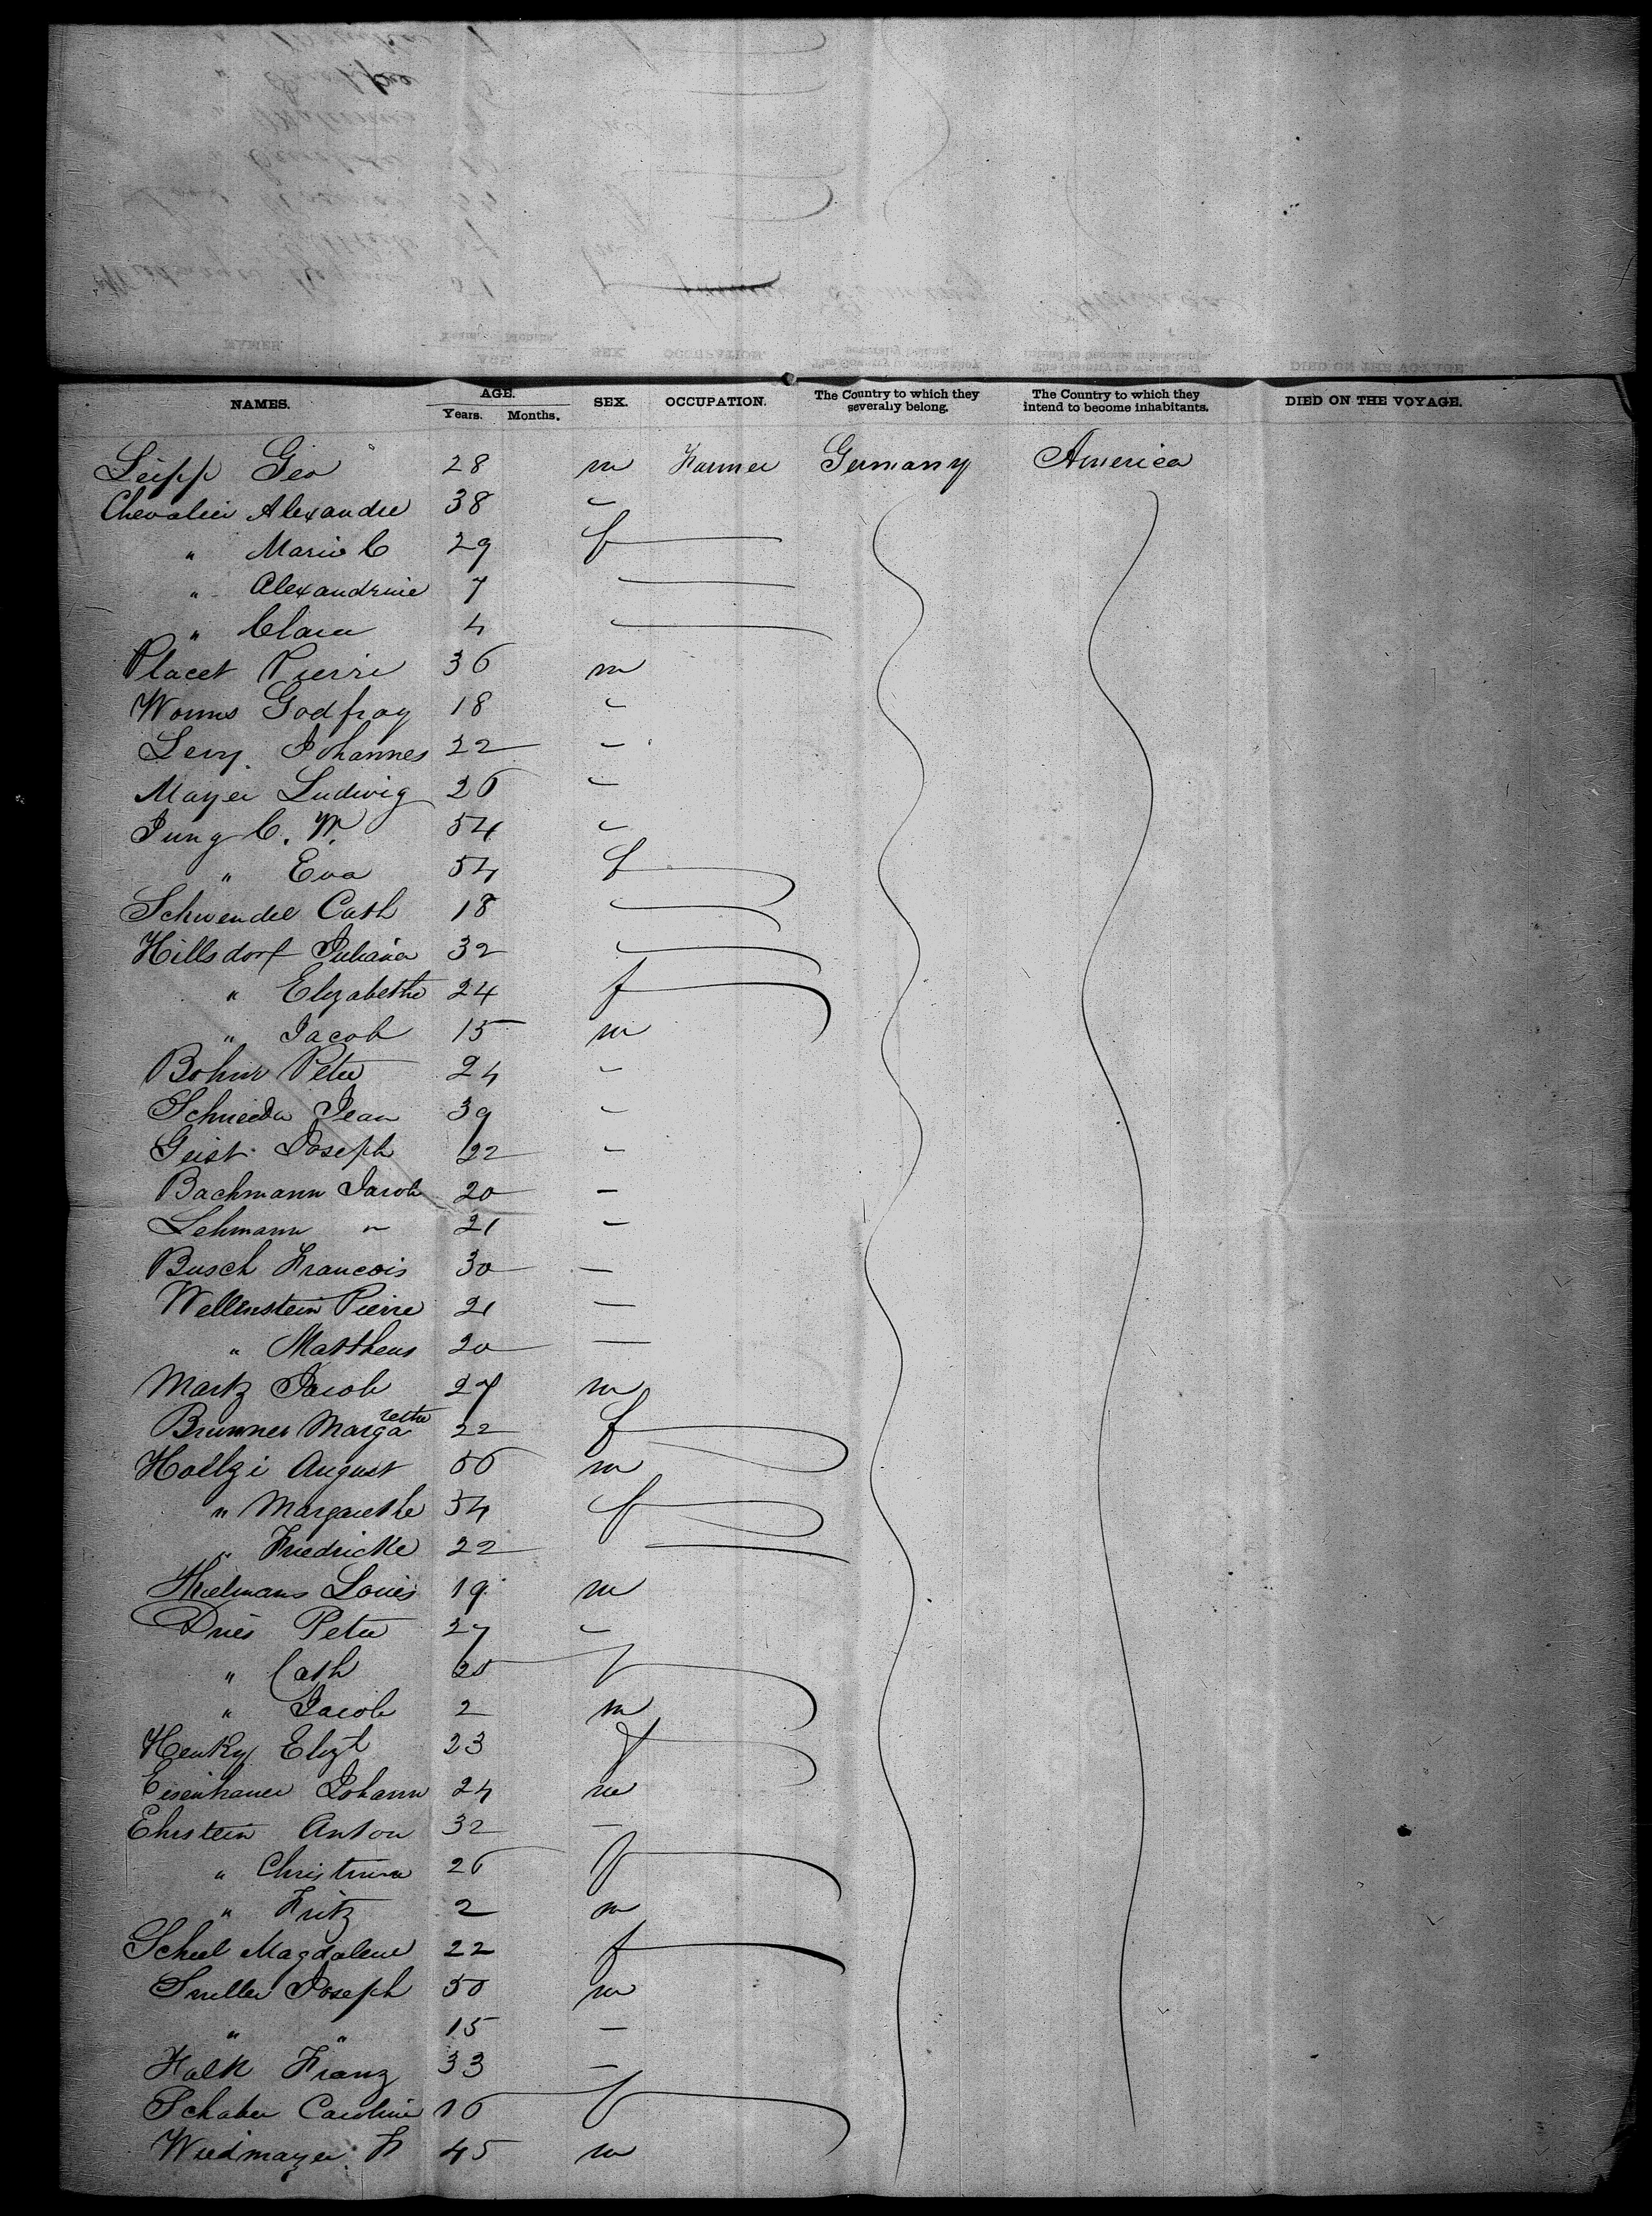 NAMES. AGE. Years. Months. SEX. OCCUPATION. The Country to which they severally belong. The Country to which they intend to become inhabitants. DIED ON THE VOYAGE.
Leipp Geo 28 m Farmer Germany America
Chevalier Alexandre 38 "
" Marie C 29 f
" Alexandrine 7
" Clara 4
Placet Pierre 36 m
Worms Godfray 18 "
Levy Johannes 22 "
Mayer Ludwig 26 "
Jung C. W. 54 "
" Eva 54 f
Schwendel Cath 18
Hillsdorf Juliana 32
" Elizabethe 24 f
" Jacob 15 m
Peter 24 "
Schneider Jean 39 "
Geist Joseph 22 "
Bachmann Jacob 20 "
Lehmann " 21 "
Busch Francois 30 —
Wellenstein Pierre 21 —
" Mattheus 20 —
Martz Jacob 27 m
Brunner Margarethe 22 f
August 56 m
" Margarethe 54 f
" Friedricke 22
Thielmans Louis 19 m
Dries Peter 27 "
" Cath f
" Jacob 2 m
Elizt 23 f
Eisenhauer Johann 24 m
Ehrstein Anton 32 —
" Christina 26 f
" Fritz 2 m
Scheel Magdalene 22 f
Joseph 50 m
" " 15 —
Falk Franz 33 —
Caroline 16 f
Wiedmayer F 45 m